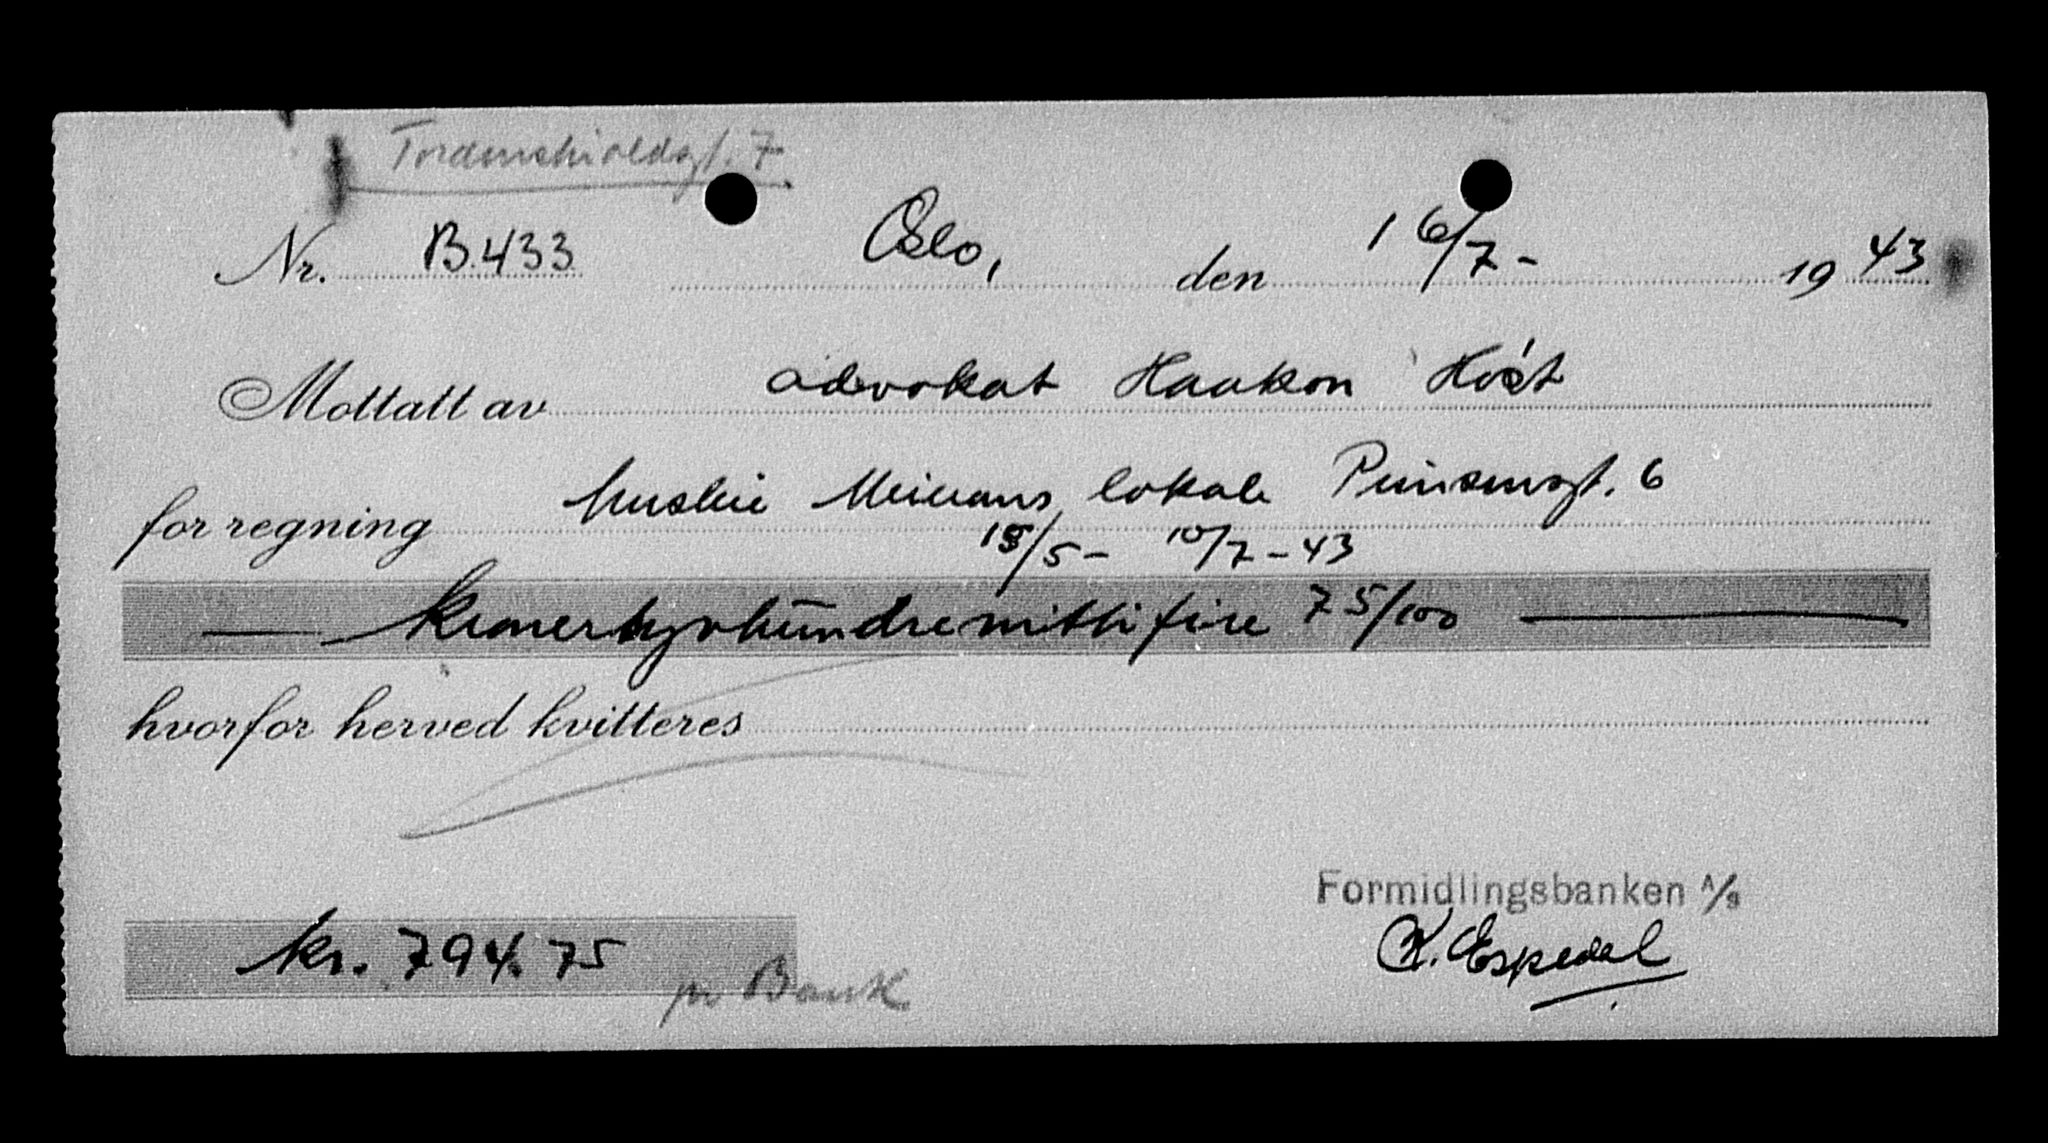 Tordenskioldsgt. 7
Nr. B.433 Oslo, den 16/7- 1943
Mottatt av advokat Haakon Høst
for regning husleie lokale Prinsensgt. 6
15/5- 10/7-43
— kroner syvhundrenittifire 75/100 —
hvorfor herved kvitteres
Formidlingsbanken A/S
K. Espedal
kr. 794.75
pr Bank